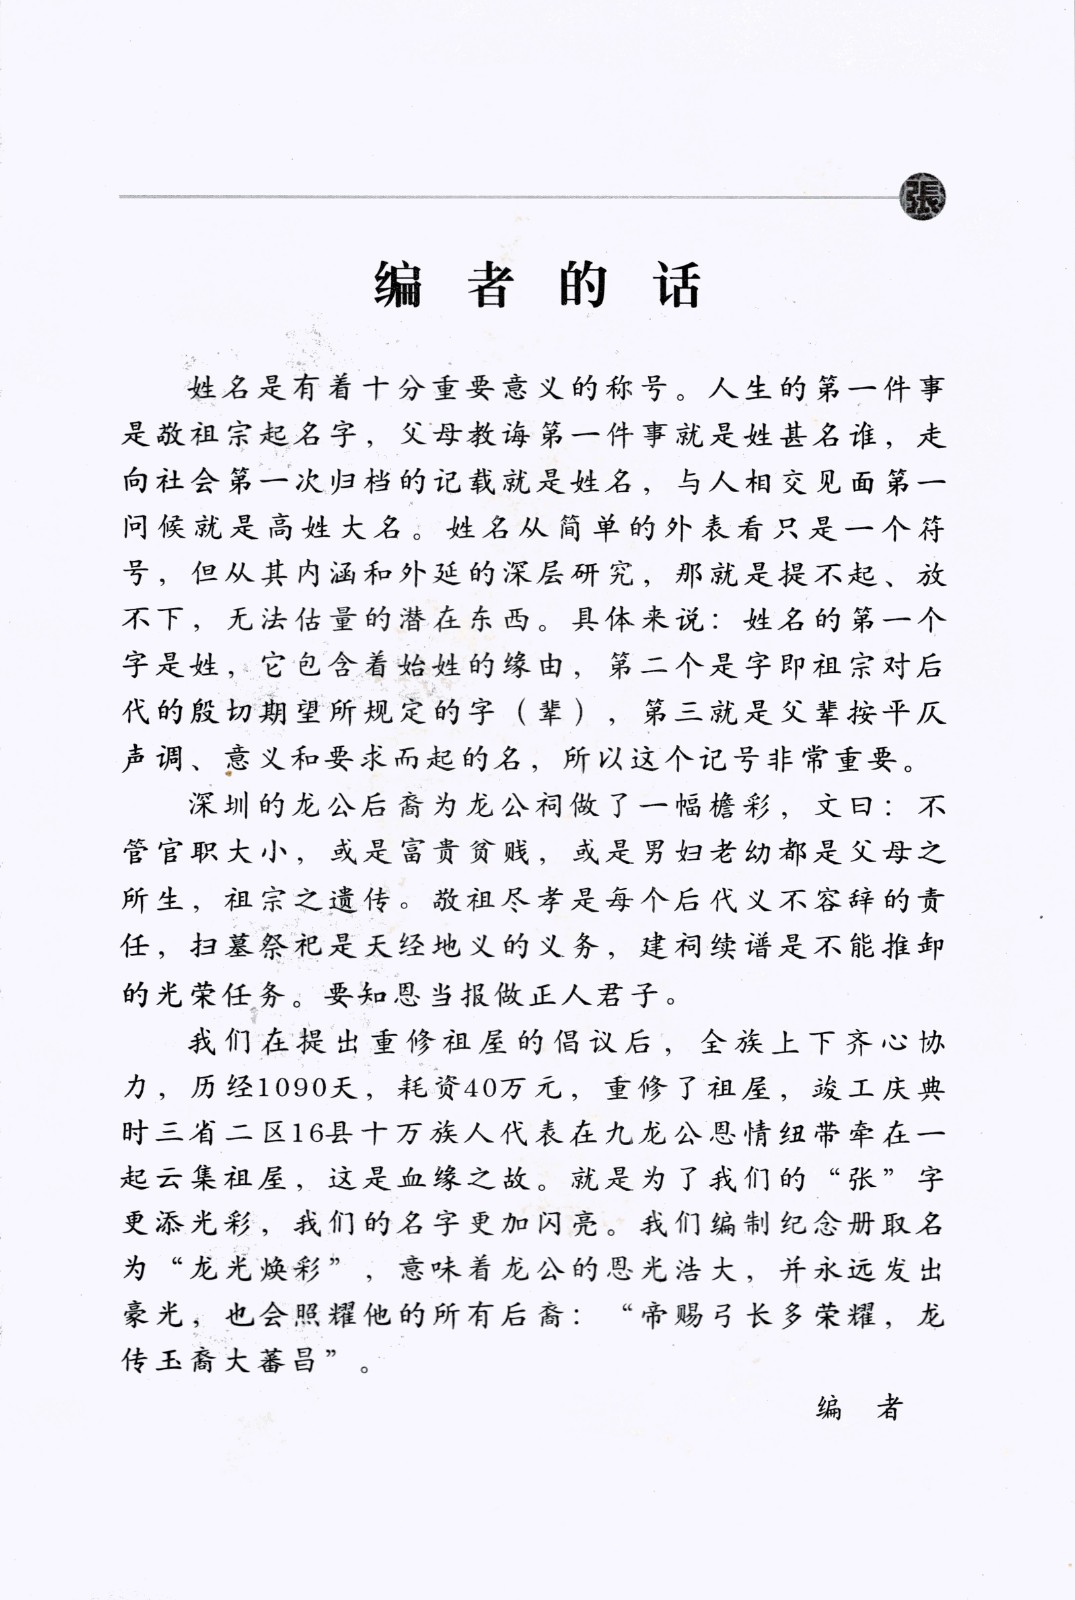 張
编者的话
姓名是有着十分重要意义的称号。人生的第一件事
是敬祖宗起名字，父母教诲第一件事就是姓甚名谁，走
向社会第一次归档的记载就是姓名，与人相交见面第一
问候就是高姓大名。姓名从简单的外表看只是一个符
号，但从其内涵和外延的深层研究，那就是提不起、放
不下，无法估量的潜在东西。具体来说：姓名的第一个
字是姓，它包含着始姓的缘由，第二个是字即祖宗对后
代的殷切期望所规定的字（辈），第三就是父辈按平仄
声调、意义和要求而起的名，所以这个记号非常重要。
深圳的龙公后裔为龙公祠做了一幅檐彩，文曰：不
管官职大小，或是富贵贫贱，或是男妇老幼都是父母之
所生，祖宗之遗传。敬祖尽孝是每个后代义不容辞的责
任，扫墓祭祀是天经地义的义务，建祠续谱是不能推卸
的光荣任务。要知恩当报做正人君子。
我们在提出重修祖屋的倡议后，全族上下齐心协
力，历经1090天，耗资40万元，重修了祖屋，竣工庆典
时三省二区16县十万族人代表在九龙公恩情纽带牵在一
起云集祖屋，这是血缘之故。就是为了我们的“张”字
更添光彩，我们的名字更加闪亮。我们编制纪念册取名
为“龙光焕彩”，意味着龙公的恩光浩大，并永远发出
豪光，也会照耀他的所有后裔：“帝赐弓长多荣耀，龙
传玉裔大蕃昌”。
编者